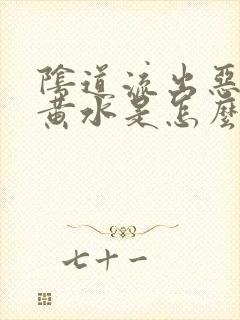 陰道流出惡
黃水是怎麼
七十一